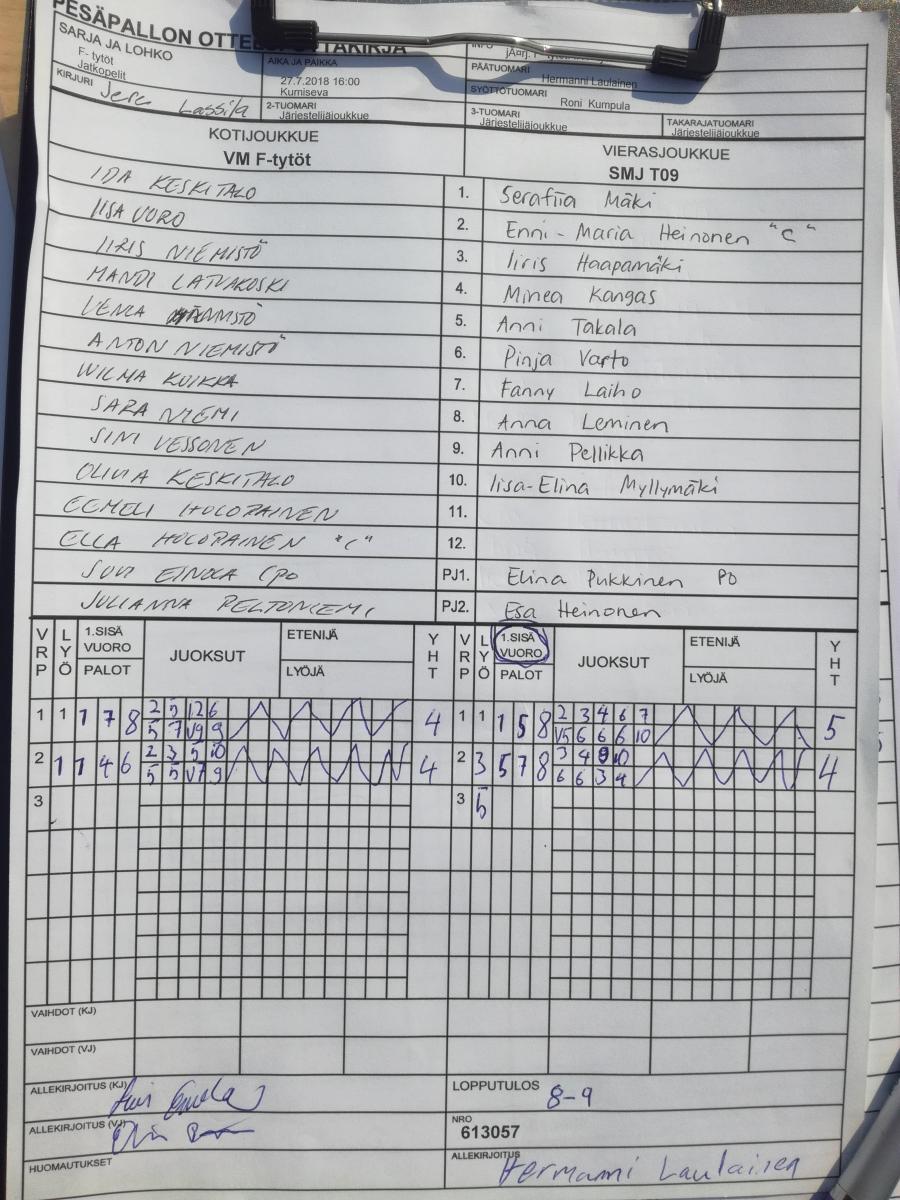 PESÄPALLON OTTELUPÖYTÄKIRJA
SARJA JA LOHKO
F- tytöt
Jatkopelit
AIKA JA PAIKKA
27.7.2018 16:00
Kumiseva
PÄÄTUOMARI
Hermanni Laulainen
SYÖTTÖTUOMARI
Roni Kumpula
KIRJURI
Jere Lassila
2-TUOMARI
Järjestelijäjoukkue
3-TUOMARI
Järjestelijäjoukkue
TAKARAJATUOMARI
Järjestelijäjoukkue
KOTIJOUKKUE VIERASJOUKKUE
VM F-tytöt SMJ T09
IDA KESKITALO 1. Serafiia Mäki
IISA VUORO 2. Enni-Maria Heinonen "C"
IIRIS NIEMISTÖ 3. Iiris Haapamäki
MANDI LATVAKOSKI 4. Minea Kangas
VENLA 5. Anni Takala
ANTON NIEMISTÖ 6. Pinja Varto
WILMA KUIKKA 7. Fanny Laiho
SARA NIEMI 8. Anna Leminen
SINI VESSONEN 9. Anni Pellikka
OLIVIA KESKITALO 10. Iisa-Elina Myllymäki
EEMELI HOLOPAINEN 11.
ELLA HOLOPAINEN "C" 12.
SUVI EINOLA CPO PJ1. Elina Pukkinen PO
JULIANNA PELTONIEMI PJ2. Esa Heinonen
VRP LYÖ 1.SISÄ VUORO PALOT JUOKSUT ETENIJÄ LYÖJÄ YHT VRP LYÖ 1.SISÄ VUORO PALOT JUOKSUT ETENIJÄ LYÖJÄ YHT
1 1 1 7 8 2 5 12 6 4 1 1 1 5 8 2 3 4 6 7 5
5 7 V9 9 V5 6 6 6 10
2 1 1 4 6 2 3 5 10 4 2 3 5 7 8 3 4 9 10 4
5 5 V7 9 6 6 3 4
3 3 5
VAIHDOT (KJ)
VAIHDOT (VJ)
ALLEKIRJOITUS (KJ)
LOPPUTULOS
8-9
ALLEKIRJOITUS (VJ)
NRO
613057
HUOMAUTUKSET
ALLEKIRJOITUS
Hermanni Laulainen